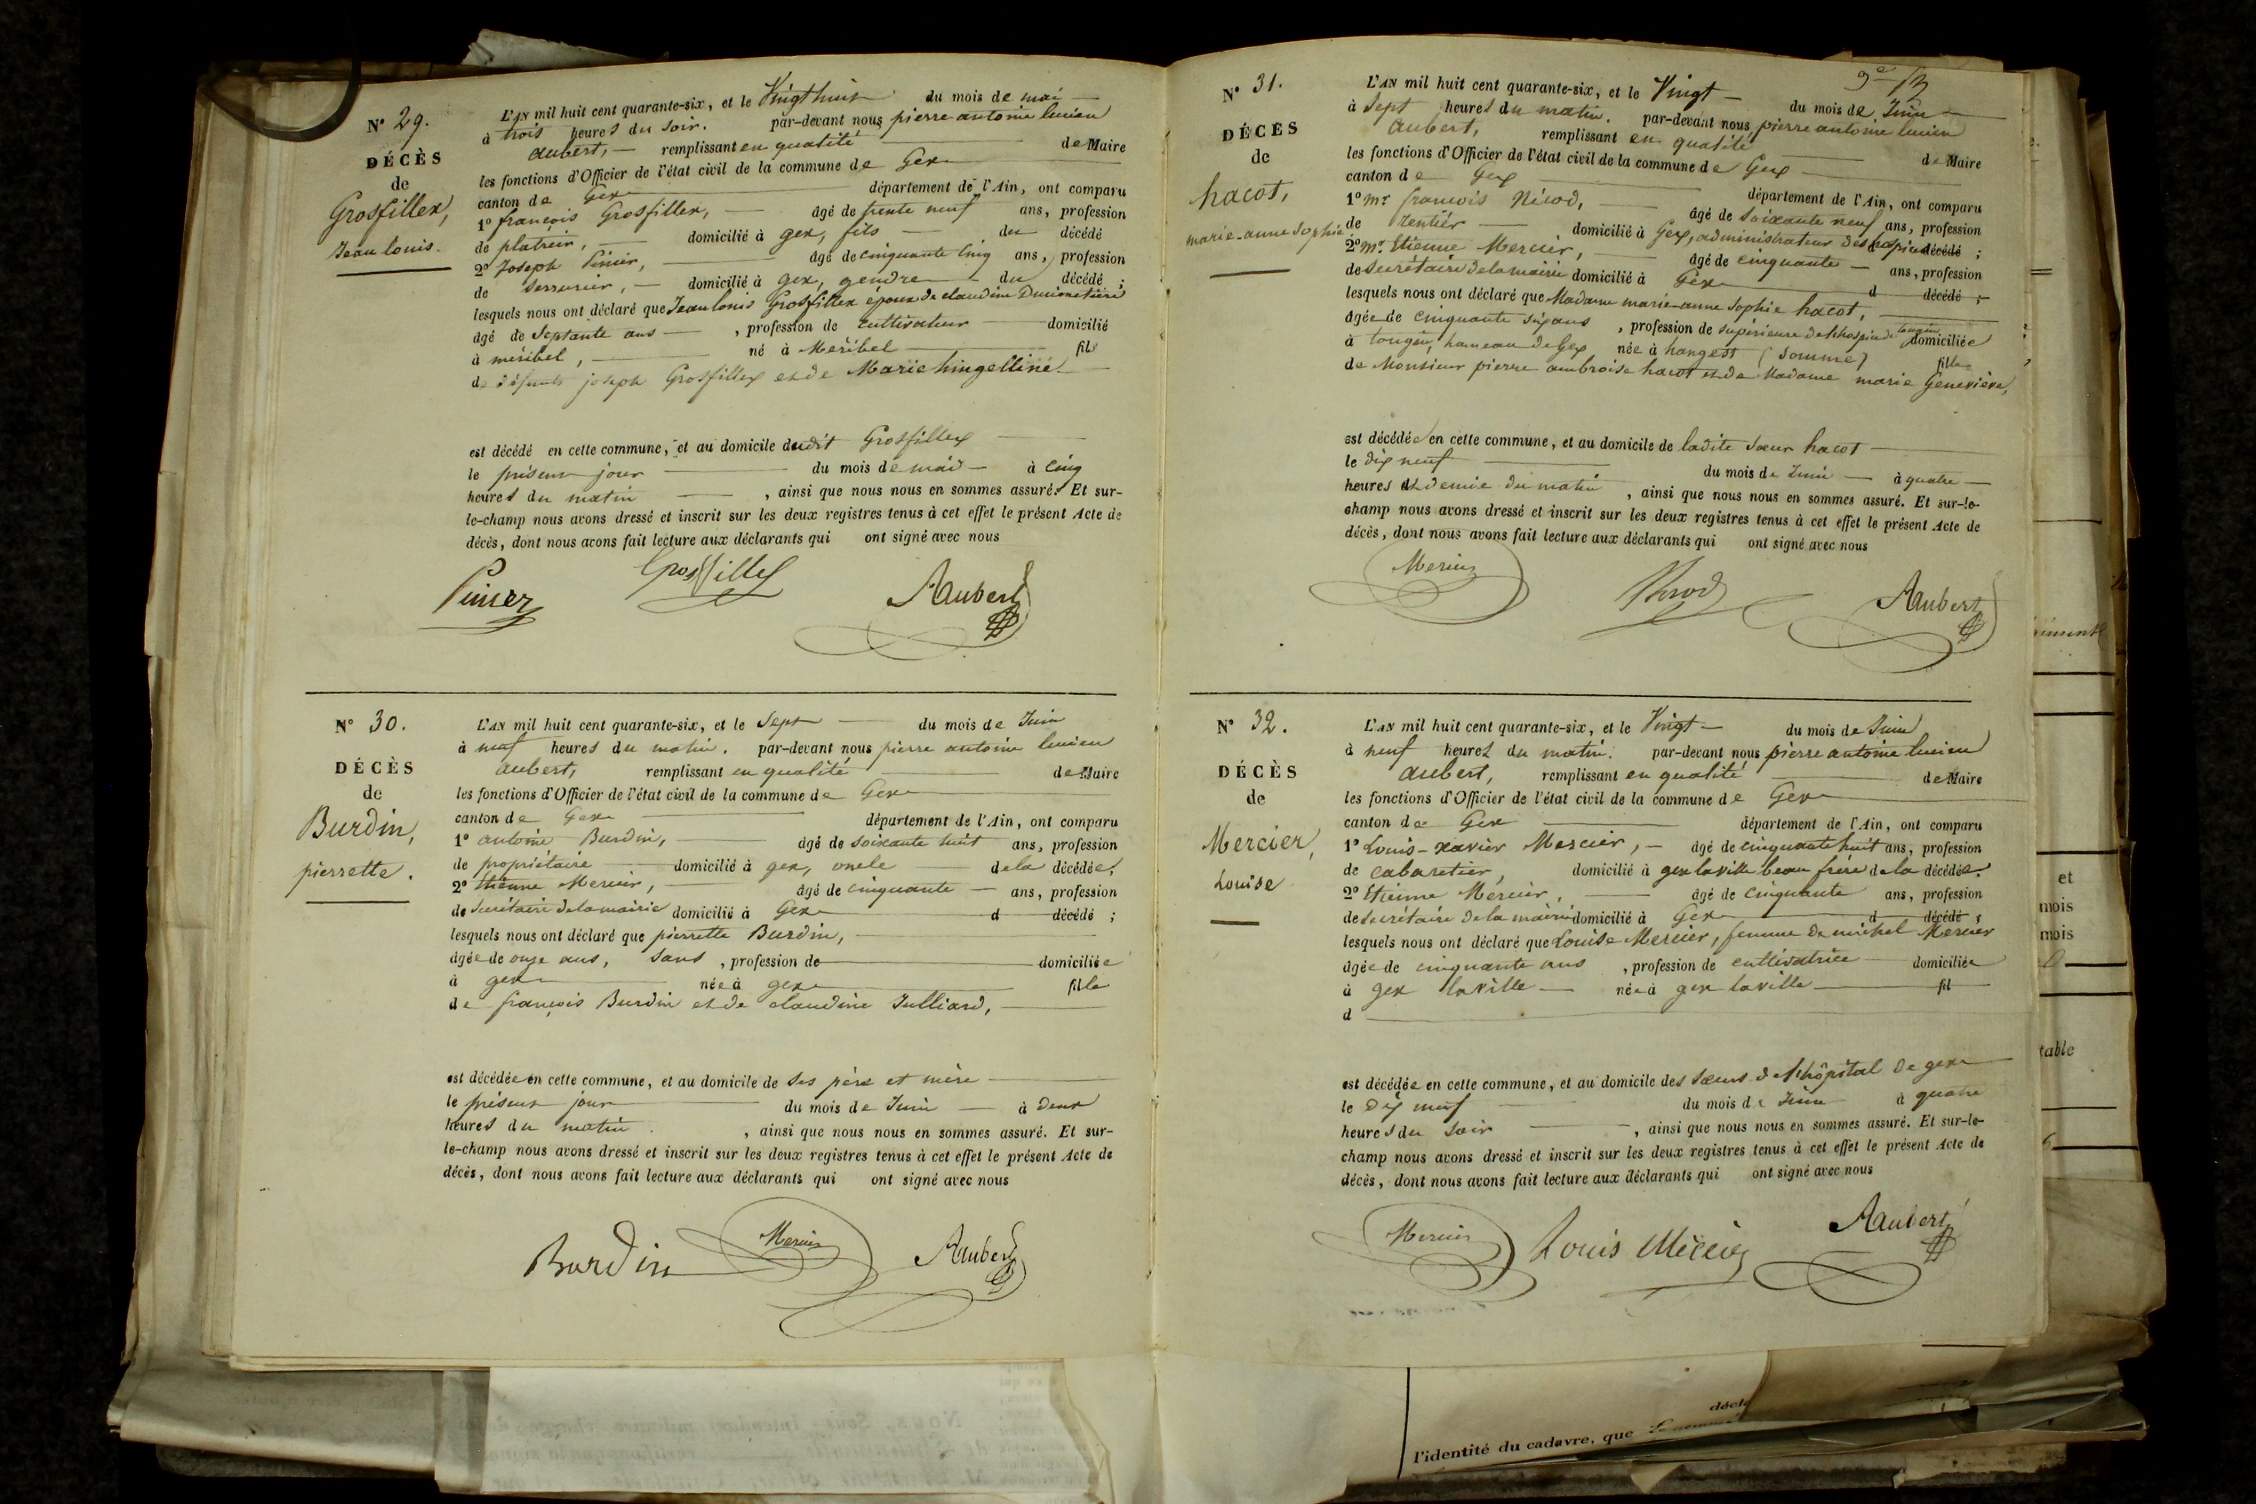 N° 29.
DÉCÈS
de
Grosfillex,
Jean louis.
L'AN mil huit cent quarante-six, et le Vingt huit du mois de mai
à trois heures du soir. par-devant nous pierre antoine lucien
aubert, remplissant en qualité de Maire
les fonctions d'Officier de l'état civil de la commune de Gex
canton de Gex département de l'Ain, ont comparu
1° françois Grosfillex, âgé de trente neuf ans, profession
de platrier, domicilié à gex, fils du décédé
2° Joseph âgé de cinquante cinq ans, profession
de serrurier, domicilié à gex, gendre du décédé ;
lesquels nous ont déclaré que Jean louis Grosfillex époux de claudine
âgé de Septante ans , profession de cultivateur domicilié
à méribel, né à Méribel fils
de défunts joseph Grosfillex et de Marie
est décédé en cette commune, et au domicile dudit Grosfillex
le présent jour du mois de mai à cinq
heures du matin , ainsi que nous nous en sommes assuré. Et sur-
le-champ nous avons dressé et inscrit sur les deux registres tenus à cet effet le présent Acte de
décès, dont nous avons fait lecture aux déclarants qui ont signé avec nous
Grosfillex
Aaubert
N° 30.
DÉCÈS
de
Burdin,
pierrette.
L'AN mil huit cent quarante-six, et le Sept du mois de Juin
à neuf heures du matin. par-devant nous pierre antoine lucien
aubert, remplissant en qualité de Maire
les fonctions d'Officier de l'état civil de la commune de Gex
canton de Gex département de l'Ain, ont comparu
1° antoine Burdin, âgé de soixante huit ans, profession
de propriétaire domicilié à gex, oncle de la décédée,
2° Etienne Mercier, âgé de cinquante ans, profession
de secrétaire de la mairie domicilié à Gex d décédé ;
lesquels nous ont déclaré que pierrette Burdin,
âgée de onze ans, sans , profession de domiciliée
à gex née à gex fille
de françois Burdin et de claudine Julliard,
est décédée en cette commune, et au domicile de ses père et mère
le présent jour du mois de Juin à deux
heures du matin , ainsi que nous nous en sommes assuré. Et sur-
le-champ nous avons dressé et inscrit sur les deux registres tenus à cet effet le présent Acte de
décès, dont nous avons fait lecture aux déclarants qui ont signé avec nous
Burdin Mercier Aaubert
N° 31.
DÉCÈS
de
hacot,
marie-anne Sophie
L'AN mil huit cent quarante-six, et le Vingt du mois de Juin
à Sept heures du matin. par-devant nous pierre antoine lucien
aubert, remplissant en qualité de Maire
les fonctions d'Officier de l'état civil de la commune de Gex
canton de Gex département de l'Ain, ont comparu
1° Mr françois Nicod, âgé de soixante neuf ans, profession
de rentier domicilié à Gex, administrateur des hospices décédé ;
2° Mr Etienne Mercier, âgé de cinquante ans, profession
de secrétaire de la mairie domicilié à Gex d décédé ;
lesquels nous ont déclaré que Madame marie-anne Sophie hacot,
âgée de cinquante six ans , profession de supérieure de l'hospice de tougin domiciliée
à tougin, hameau de Gex née à hangest (Somme) fille
de Monsieur pierre ambroise hacot et de Madame marie Geneviève,
est décédée en cette commune, et au domicile de ladite Sœur hacot
le dix neuf du mois de Juin à quatre
heures et demie du matin , ainsi que nous nous en sommes assuré. Et sur-le-
champ nous avons dressé et inscrit sur les deux registres tenus à cet effet le présent Acte de
décès, dont nous avons fait lecture aux déclarants qui ont signé avec nous
Mercier Nicod Aaubert
N° 32.
DÉCÈS
de
Mercier,
Louise
L'AN mil huit cent quarante-six, et le Vingt du mois de Juin
à neuf heures du matin. par-devant nous pierre antoine lucien
aubert, remplissant en qualité de Maire
les fonctions d'Officier de l'état civil de la commune de Gex
canton de Gex département de l'Ain, ont comparu
1° Louis-xavier Mercier, âgé de cinquante huit ans, profession
de cabaretier, domicilié à gex la ville beau frère de la décédée.
2° Etienne Mercier, âgé de cinquante ans, profession
de secrétaire de la mairie domicilié à Gex d décédé ;
lesquels nous ont déclaré que Louise Mercier, femme de michel Mercier
âgée de cinquante ans , profession de cultivatrice domiciliée
à gex la ville née à gex la ville fil
d
est décédée en cette commune, et au domicile des sœurs de l'hôpital de gex
le dix neuf du mois de Juin à quatre
heures du soir , ainsi que nous nous en sommes assuré. Et sur-le-
champ nous avons dressé et inscrit sur les deux registres tenus à cet effet le présent Acte de
décès, dont nous avons fait lecture aux déclarants qui ont signé avec nous
Mercier Louis Aaubert
et
mois
mois
table
l'identité du cadavre, que